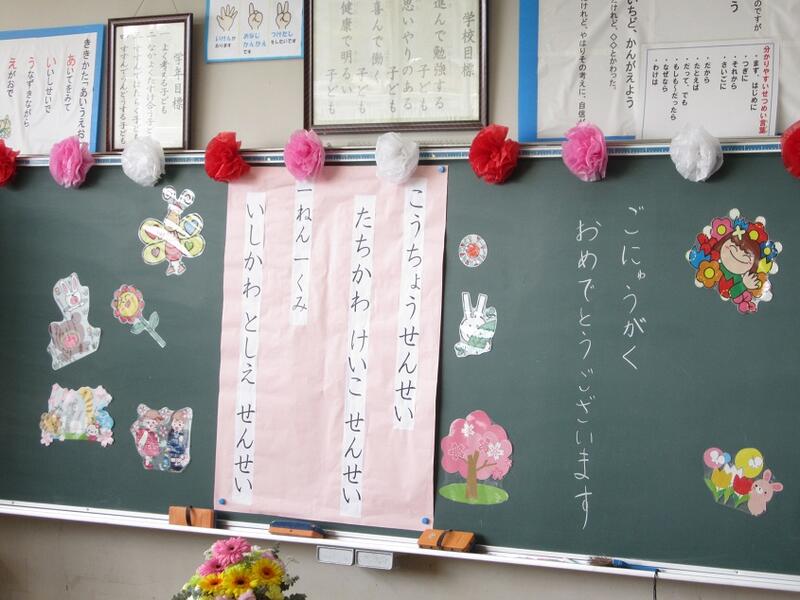 ごにゅうがく
おめでとうございます
こうちょうせんせい
たちかわ けいこ せんせい
一ねん 一くみ
いしかわ としえ せんせい
学校目標
進んで勉強する子ども
思いやりのある子ども
喜んで働く子ども
健康で明るい子ども
学年目標
ききかた「あいうえお」
あいてをみて
いいしせいで
うなずきながら
えがおで
いけんがあります
おなじかんがえです
つけたしをしたいです
いちど、かんがえよう
たけれど、◇◇とかわった。
だけれど、やはりその考えに、自信
分かりやすいせつめい言葉
・まず、はじめに
・つぎに
・それから
・さいごに
・だから
・たとえば
・だって、でも
・もしも〜だったら
・なぜなら
・わけは